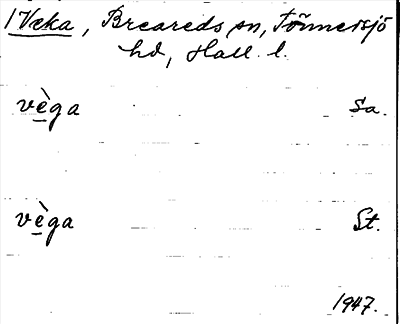 1 Veka, Breareds sn, Tönnersjö
hd, Hall. l.
vè̱ga Sa.
vè̱ga St.
1947.